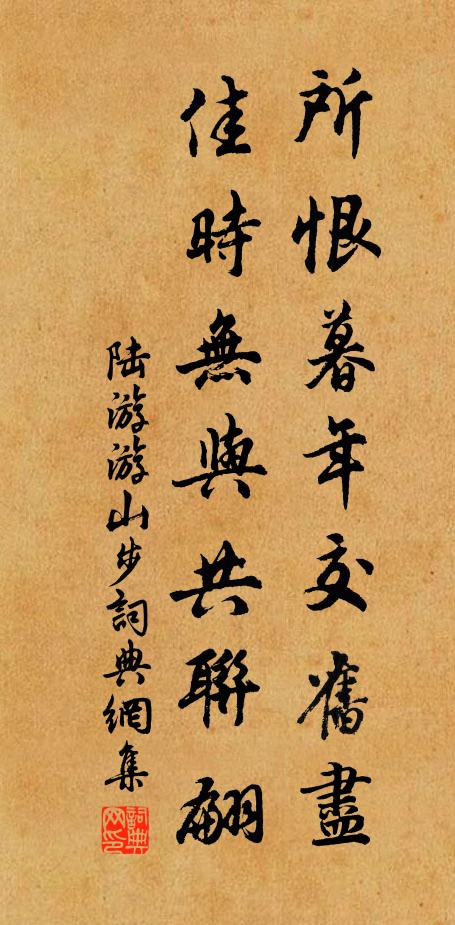 所恨暮年交舊盡
佳時無與共聯翩
陆游游山步詞典網集
詞典网印